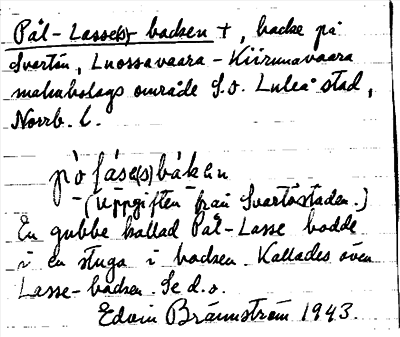 Pål-Lasse(s) backen +, backe på
Svartön, Luossavaara-Kiirunavaara
malmbolags område S.o. Luleå stad,
Norrb. l.
på lase(s) bákən
- (Uppgiften från Svartöstaden.)
En gubbe kallad Pål-Lasse bodde
i en stuga i backen. Kallades även
Lasse-backen. Se d.o.
Edvin Brännström 1943.